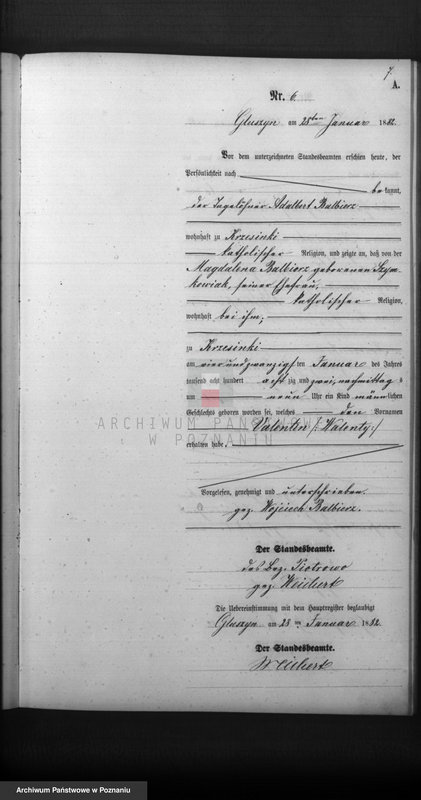 7.
A.
Nr. 6.
Gluszyn am 28ten Januar 1882.
Vor dem unterzeichneten Standesbeamten erschien heute, der
Persönlichkeit nach
bekannt,
der Tagelöhner Adalbert Balbierz
wohnhaft zu Krzesinki
katholischer Religion, und zeigte an, daß von der
Magdalena Balbierz geborenen Szym
kowiak, seiner Ehefrau,
katholischer Religion,
wohnhaft bei ihm,
zu Krzesinki
am vierundzwanzigsten Januar des Jahres
tausend acht hundert achtzig und zwei, nachmittags
um neun Uhr ein Kind männlichen
Geschlechts geboren worden sei, welches den Vornamen
Valentin /: Walenty :/
erhalten habe.
ARCHIWUM PAŃSTWOWE
W POZNANIU
Vorgelesen, genehmigt und unterschrieben.
gez. Wojciech Balbierz.
Der Standesbeamte.
des Bez. Piotrowo
gez. Weichert
Die Uebereinstimmung mit dem Hauptregister beglaubigt
Gluszyn am 28ten Januar 1882.
Der Standesbeamte.
Weichert
Archiwum Państwowe w Poznaniu